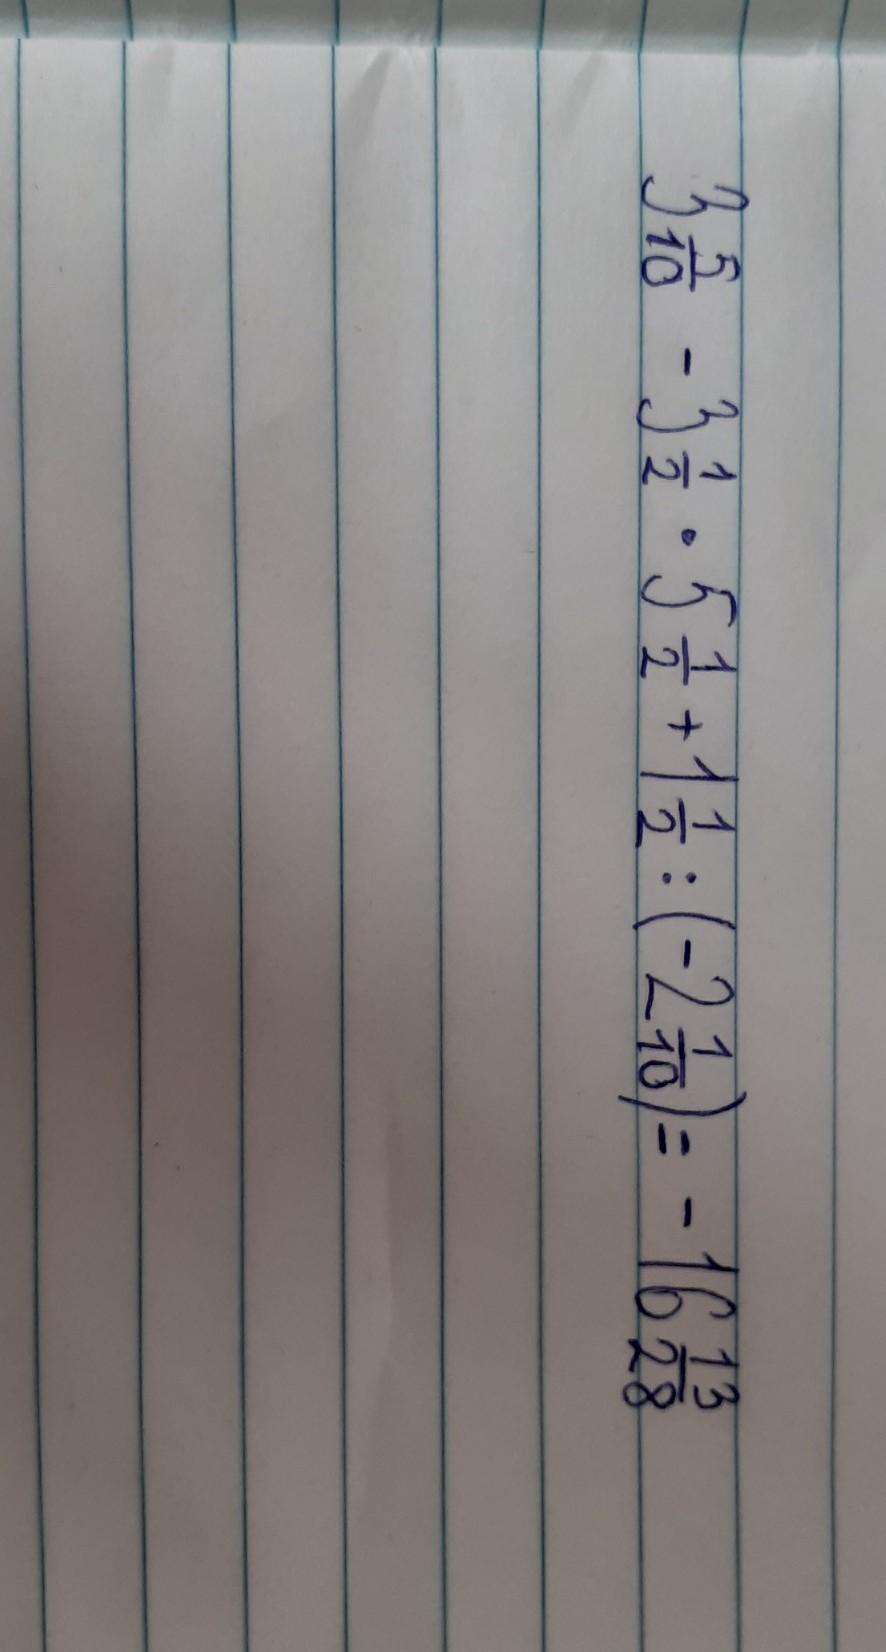 3 5/10 - 3 1/2 · 5 1/2 + 1 1/2 : (-2 1/10) = - 16 13/28